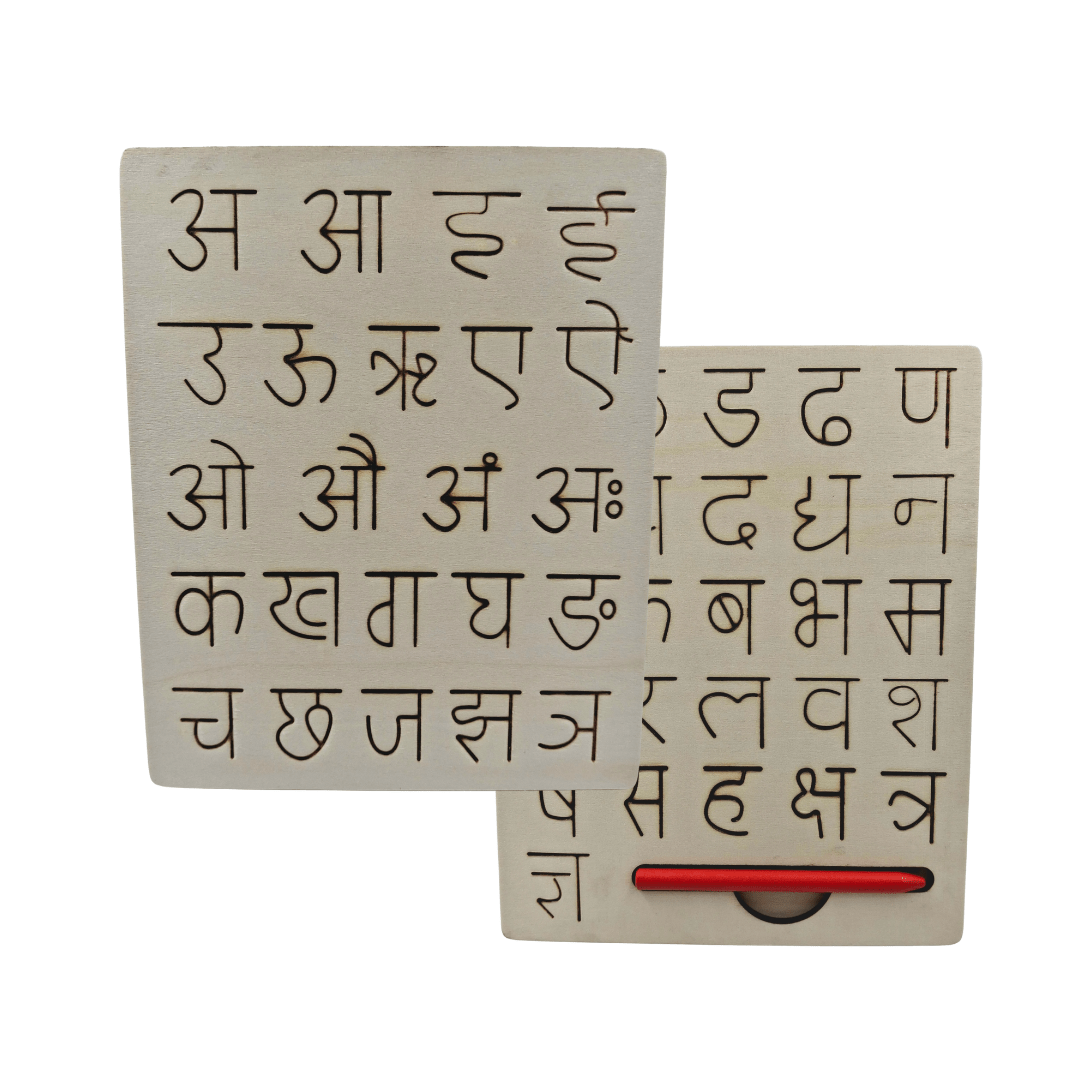 अ आ इ ई
उ ऊ ऋ ए ऐ
ओ औ अं अः
क ख ग घ ङ
च छ ज झ ञ
ड ढ ण
द ध न
ब भ म
र ल व श
ष स ह क्ष त्र